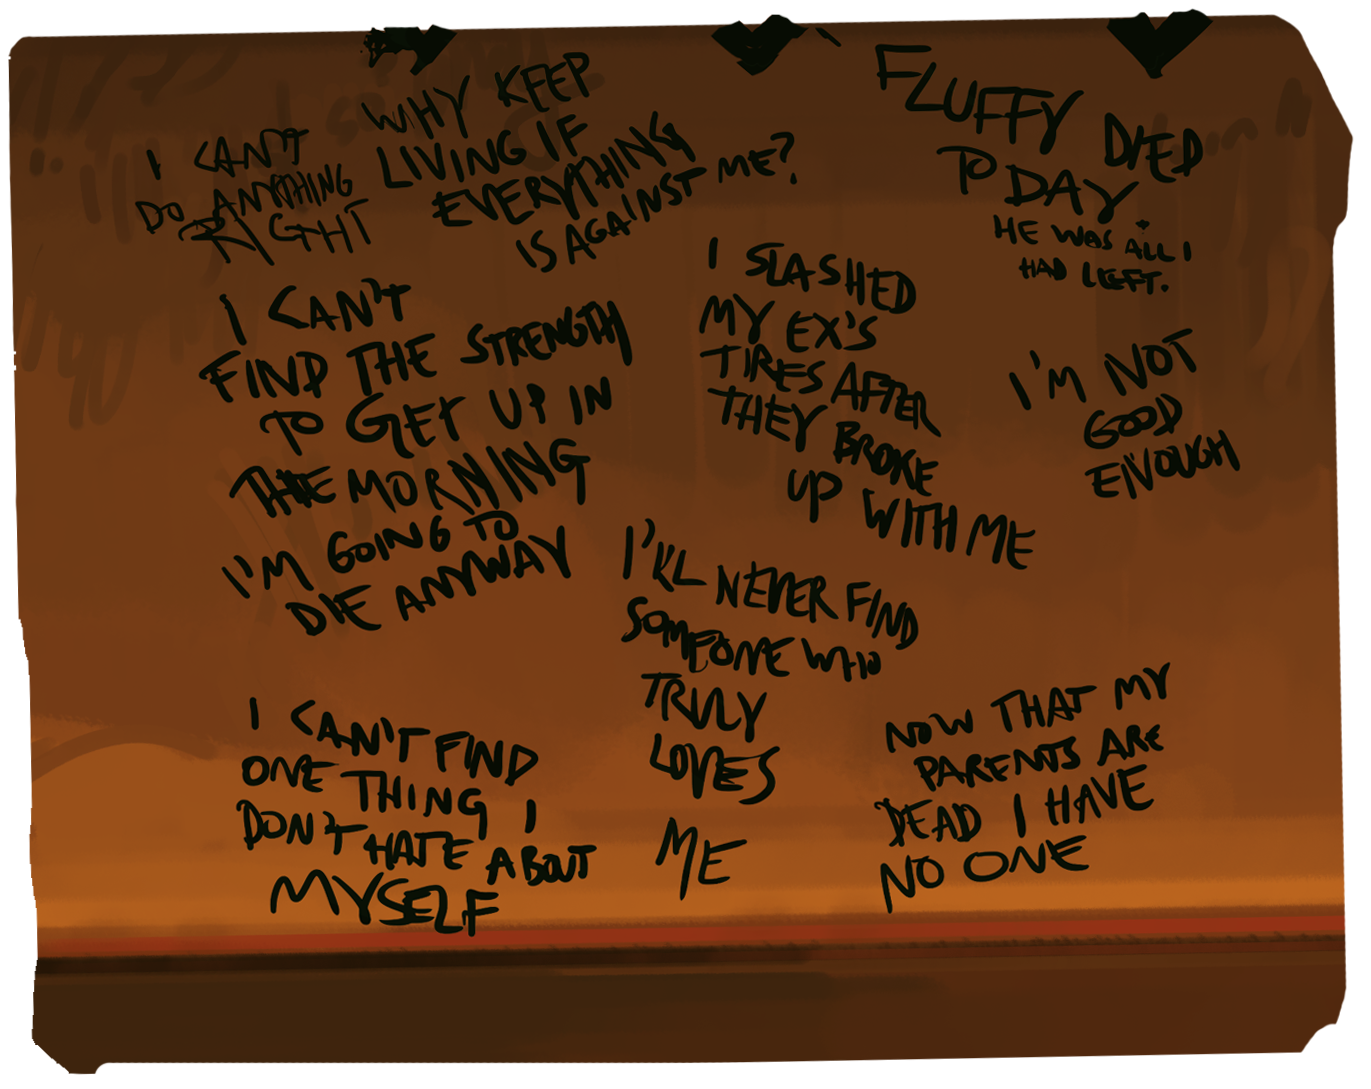 I CAN'T
DO ANYTHING
RIGHT
WHY KEEP
LIVING IF
EVERYTHING
IS AGAINST ME?
FLUFFY DIED
TODAY.
HE WAS ALL I
HAD LEFT.
I CAN'T
FIND THE STRENGTH
TO GET UP IN
THE MORNING
I'M GOING TO
DIE ANYWAY
I SLASHED
MY EX'S
TIRES AFTER
THEY BROKE
UP WITH ME
I'M NOT
GOOD
ENOUGH
I'LL NEVER FIND
SOMEONE WHO
TRULY
LOVES
ME
I CAN'T FIND
ONE THING I
DON'T HATE ABOUT
MYSELF
NOW THAT MY
PARENTS ARE
DEAD I HAVE
NO ONE